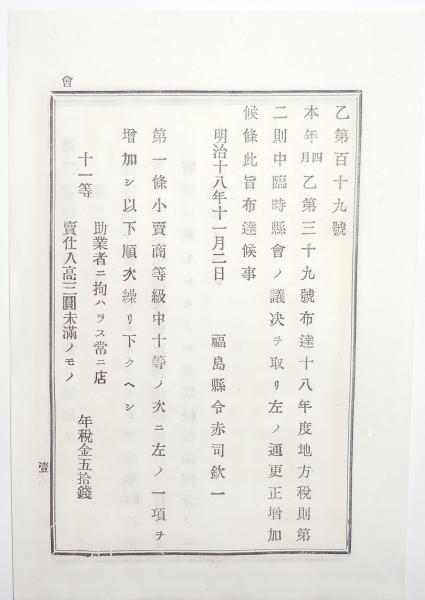 會
乙第百十九號
本年四月乙第三十九號布達十八年度地方税則第
二則中臨時縣會ノ議决ヲ取リ左ノ通更正增加
候條此旨布達候事
明治十八年十一月二日　福島縣令赤司欽一
第一條小賣商等級中十等ノ次ニ左ノ一項ヲ
增加シ以下順次繰リ下クヘシ
十一等　助業者ニ拘ハラス常ニ店
賣仕入高三圓未滿ノモノ　年税金五拾錢
壹